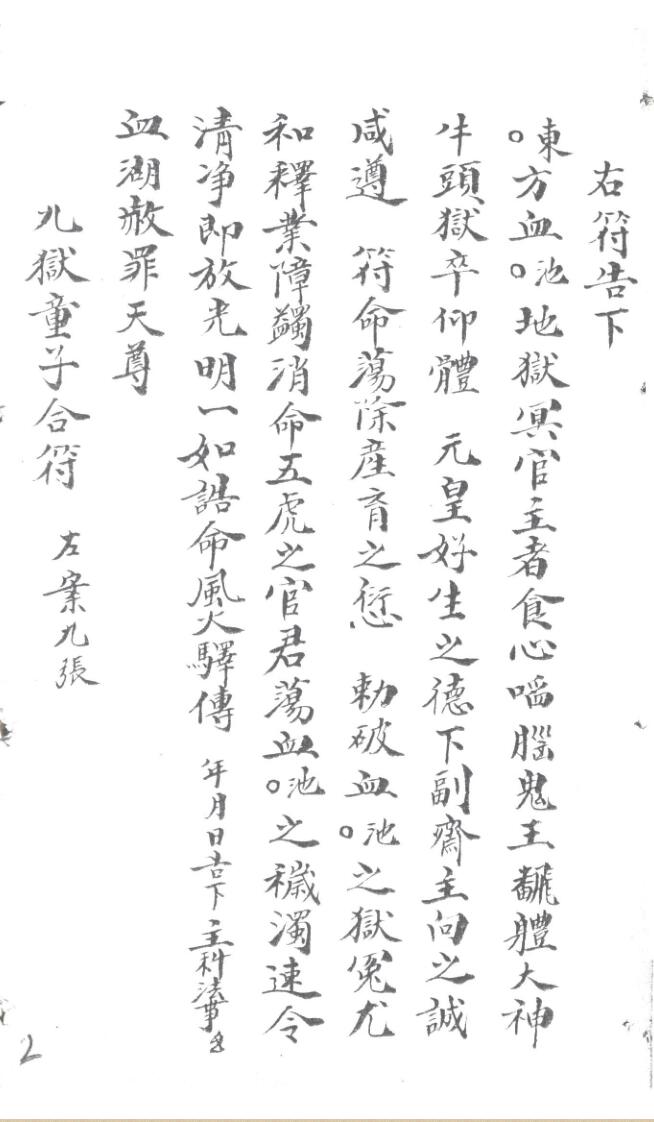 右符告下
○東方血○池地獄冥官主者食心啗腦鬼王飜體大神
牛頭獄卒仰體 元皇好生之德下副齋主向之誠
咸遵 符命蕩除産育之愆 勅破血○池之獄冤尤
和釋業障蠲消命五虎之官君蕩血○池之穢濁速令
清净即放光明一如誥命風火驛傳 年月日告下 主科法事
血湖赦罪天尊
九獄童子合符 左案九張
2